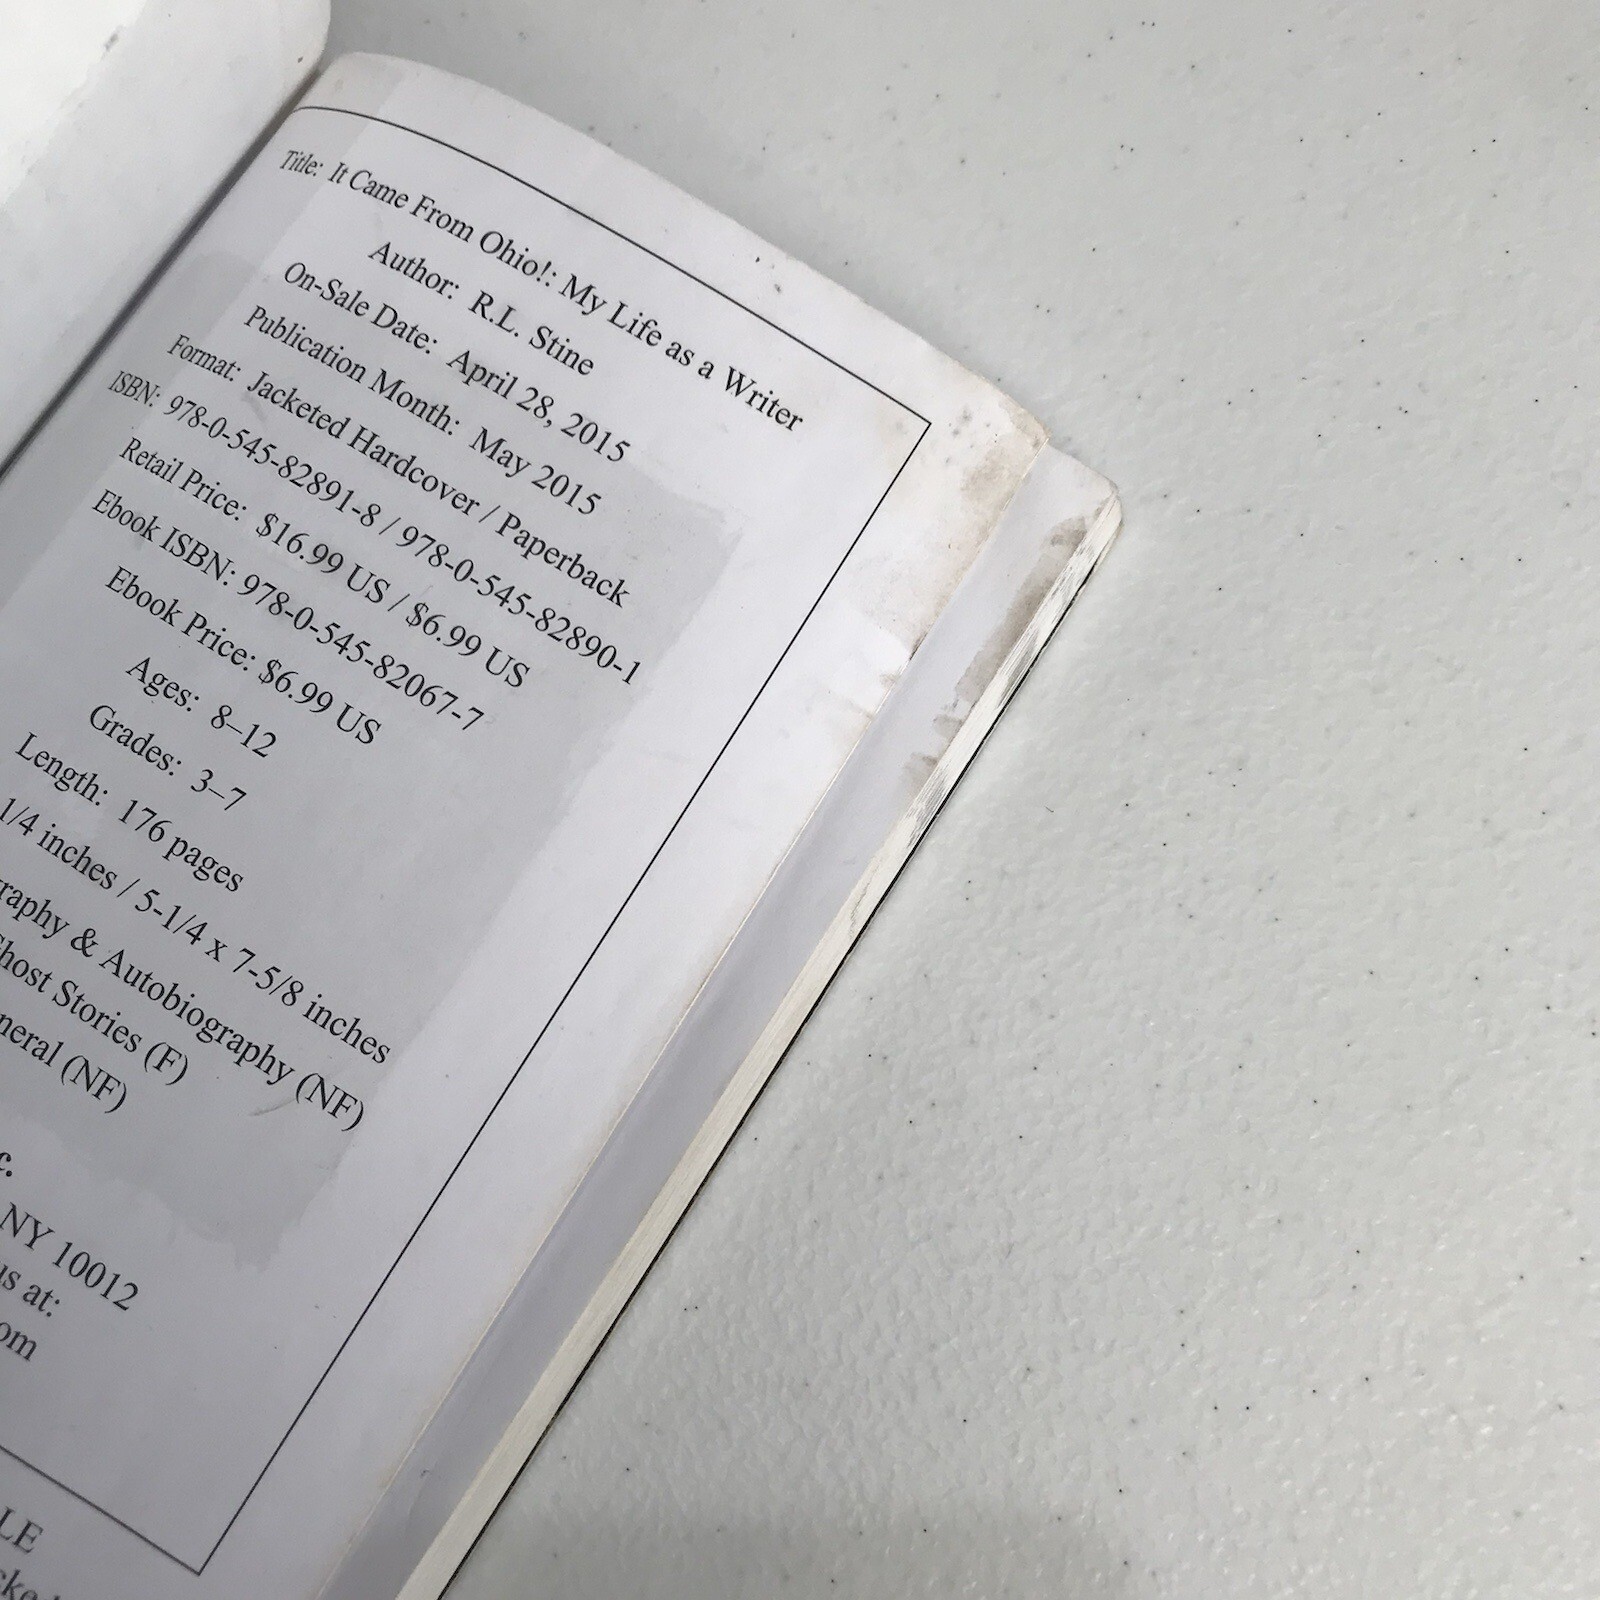 Title: It Came From Ohio!: My Life as a Writer
Author: R.L. Stine
On-Sale Date: April 28, 2015
Publication Month: May 2015
Format: Jacketed Hardcover / Paperback
ISBN: 978-0-545-82891-8 / 978-0-545-82890-1
Retail Price: $16.99 US / $6.99 US
Ebook ISBN: 978-0-545-82067-7
Ebook Price: $6.99 US
Ages: 8–12
Grades: 3–7
Length: 176 pages
1/4 inches / 5-1/4 x 7-5/8 inches
& Autobiography (NF)
Stories (F)
(NF)
NY 10012
at: